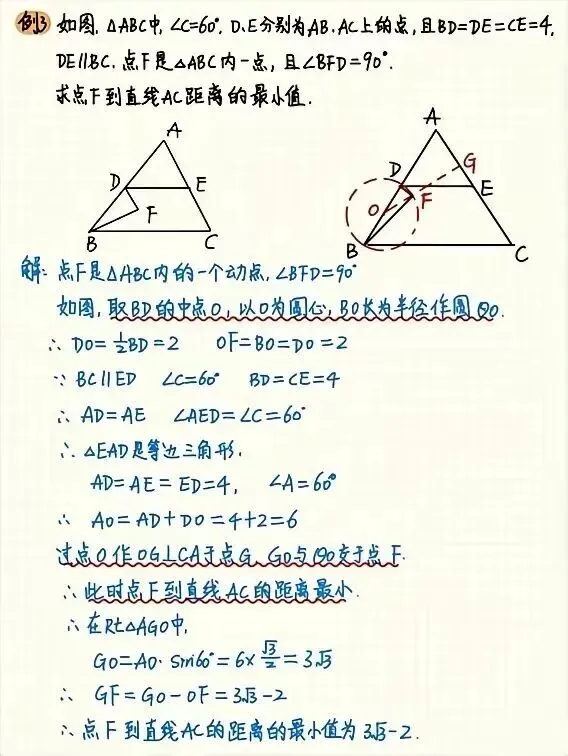 例3 如图, △ABC中, ∠C=60°, D、E分别为AB、AC上的点, 且BD=DE=CE=4,
DE∥BC. 点F是△ABC内一点, 且∠BFD=90°.
求点F到直线AC距离的最小值.
A
A
G
D
E
D
E
F
O
F
B
C
B
C
解: 点F是△ABC内的一个动点, ∠BFD=90°
如图, 取BD的中点O, 以O为圆心, BO长为半径作圆⊙O.
∴ DO=½BD=2 OF=BO=DO=2
∵ BC∥ED ∠C=60° BD=CE=4
∴ AD=AE ∠AED=∠C=60°
∴ △EAD是等边三角形.
AD=AE=ED=4, ∠A=60°
∴ AO=AD+DO=4+2=6
过点O作OG⊥CA于点G, GO与⊙O交于点F.
∴ 此时点F到直线AC的距离最小.
∴ 在Rt△AGO中,
GO=AO·sin60°=6×√3/2=3√3
∴ GF=GO-OF=3√3-2
∴ 点F到直线AC的距离的最小值为3√3-2.